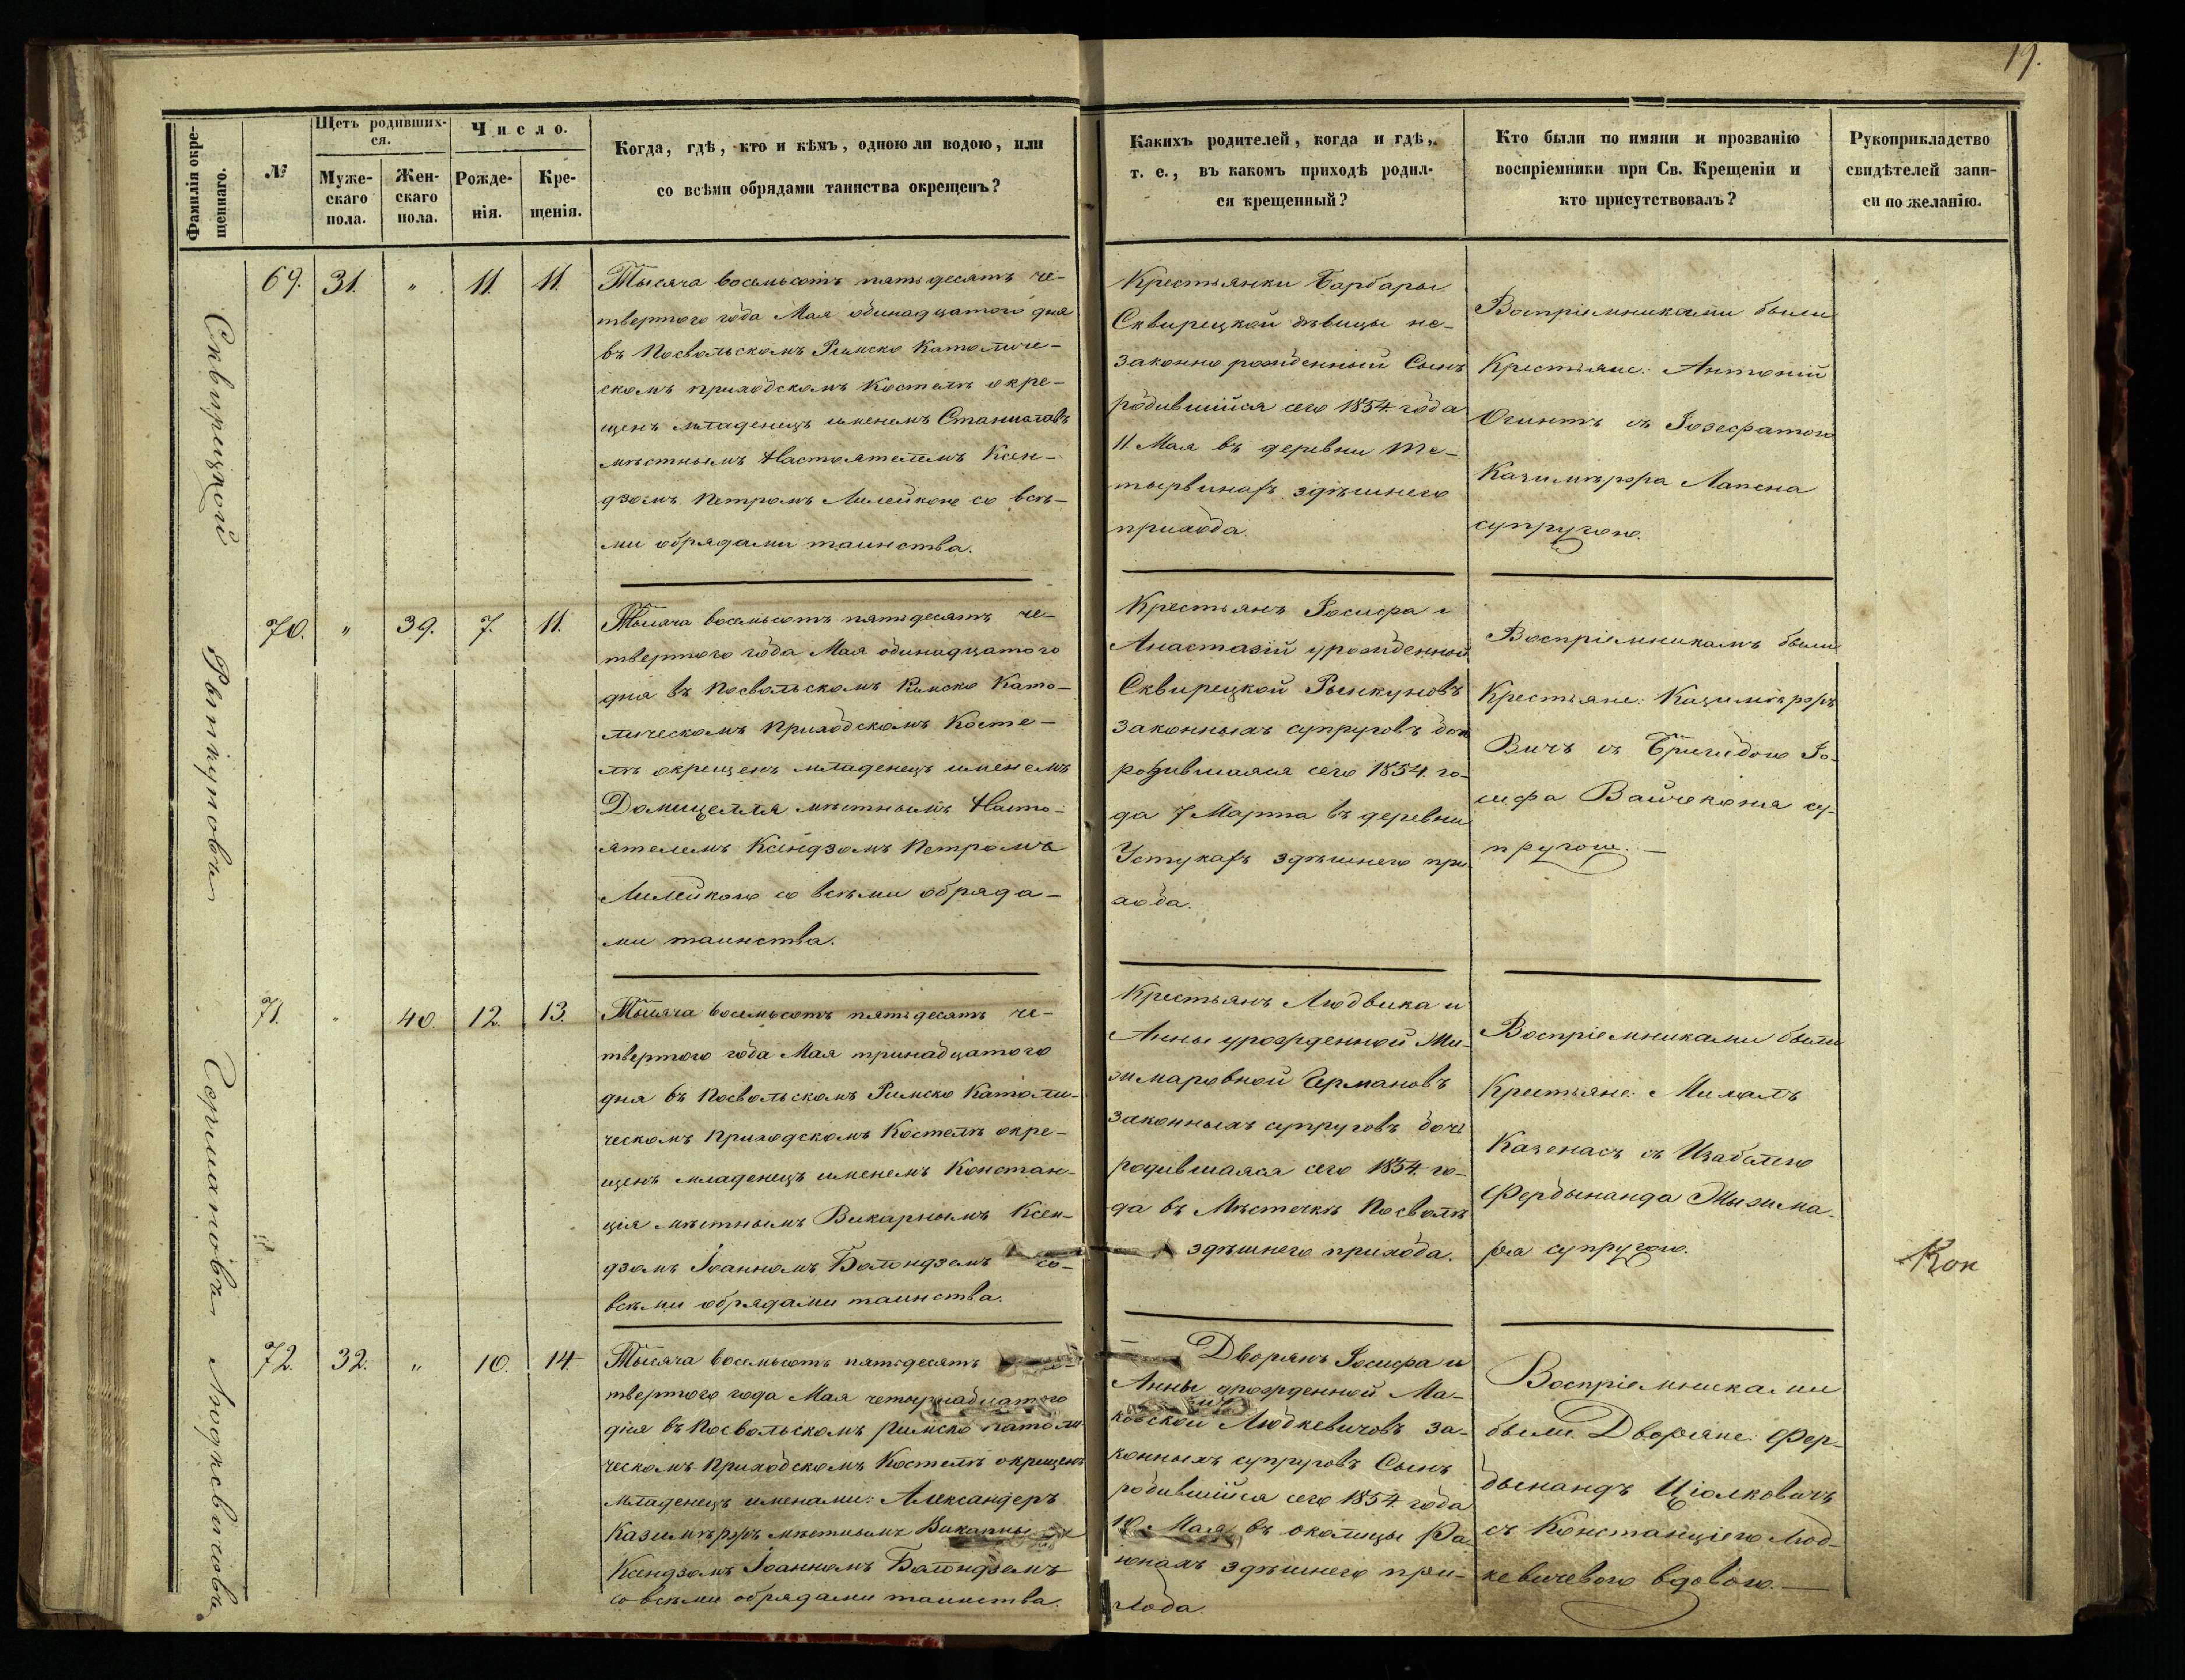 19.
Фамилія окре-
щеннаго.
№
Щетъ родивших-
ся.
Муже-
скаго
пола.
Жен-
скаго
пола.
Число.
Рожде-
нія.
Кре-
щенія.
Когда, гдѣ, кто и кѣмъ, одною ли водою, или
со всѣми обрядами таинства окрещенъ?
Какихъ родителей, когда и гдѣ,
т. е., въ какомъ приходѣ родил-
ся крещенный?
Кто были по имяни и прозванію
воспріемники при Св. Крещеніи и
кто присутствовалъ?
Рукоприкладство
свидѣтелей запи-
си по желанію.
Сквирецкой
69. 31. " 11. 11.
Тысяча восемьсотъ пятьдесятъ че-
твертого года Мая одинадцатого дня
въ Посвольскомъ Римско Католиче-
скомъ приходскомъ Костелѣ окре-
щенъ младенецъ именемъ Станиславъ
мѣстнымъ Настоятелемъ Ксен-
дзомъ Петромъ Милейкою со всѣ-
ми обрядами таинства.
Крестьянки Барбары
Сквирецкой дѣвицы не-
законно рожденный Сынъ
родившійся сего 1854 года
11 Мая въ деревни
здѣшнего
прихода.
Воспріемниками были
Крестьяне: Антоній
Огинтъ съ Іозефатою
Казимѣржа Лапена
супругою.
Рынкунова
70. " 39. 7. 11.
Тысяча восемьсотъ пятьдесятъ че-
твертого года Мая одинадцатого
дня въ Посвольскомъ Римско Като-
лическомъ Приходскомъ Косте-
лѣ окрещенъ младенецъ именемъ
Домицелля мѣстнымъ Насто-
ятелемъ Ксендзомъ Петромъ
Милейкою со всѣми обряда-
ми таинства.
Крестьянъ Іосифа и
Анастазіи урожденной
Сквирецкой Рынкуновъ
законныхъ супруговъ доч
родившаяся сего 1854 го-
да 7 Марта въ деревни
Устукахъ здѣшнего при
хода.
Воспріемникамъ были
Крестьяне: Казимѣржъ
Вичъ съ Бригидою Іо-
сифа Вайчекона су-
пругою.
Германова
71. " 40. 12. 13.
Тысяча восемьсотъ пятьдесятъ че-
твертого года Мая тринадцатого
дня въ Посвольскомъ Римско Католи-
ческомъ Приходскомъ Костелѣ окре-
щенъ младенецъ именемъ Констан-
ція мѣстнымъ Викарнымъ Ксен-
дзомъ Іоанномъ Болондземъ со-
всѣми обрядами таинства.
Крестьянъ Людвика и
Анны урожденной Жи-
жмаровной Германовъ
законныхъ супруговъ дочь
родившаяся сего 1854 го-
да въ Мѣстечкѣ Посволѣ
здѣшнего прихода.
Воспріемниками были
Крестьяне: Михалъ
Казенасъ съ Изабелею
Фердынанда Жыжма-
ра супругою.
Кон
Людкевичова
72. 32. " 10. 14.
Тысяча восемьсотъ пятьдесятъ
твертого года Мая четырнадцатого
дня въ Посвольскомъ Римско Католи
ческомъ Приходскомъ Костелѣ окрещенъ
младенецъ именами: Александеръ
Казимѣржъ мѣстнымъ
Ксендзомъ Іоанномъ Болондземъ
со всѣми обрядами таинства.
Дворянъ Іосифа и
Анны урожденной Ма-
ковской Людкевичовъ за-
конныхъ супруговъ Сынъ
родившійся сего 1854 года
10 Мая въ околицы Ра
юнахъ здѣшнего при-
хода.
Воспріемниками
были Дворяне: Фер-
дынандъ Ціолковичъ
съ Констанціею Люд-
кевичевою вдовою.